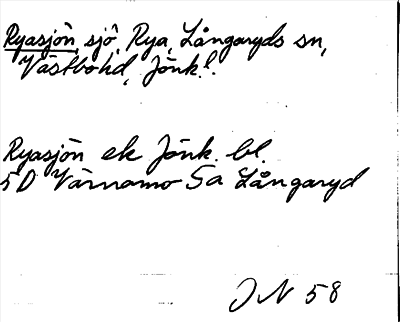 Ryasjön, sjö, Rya, Långaryds sn,
Västbo hd, Jönk.l.
Ryasjön ek Jönk. bl.
5D Värnamo 5a Långaryd
JN 58